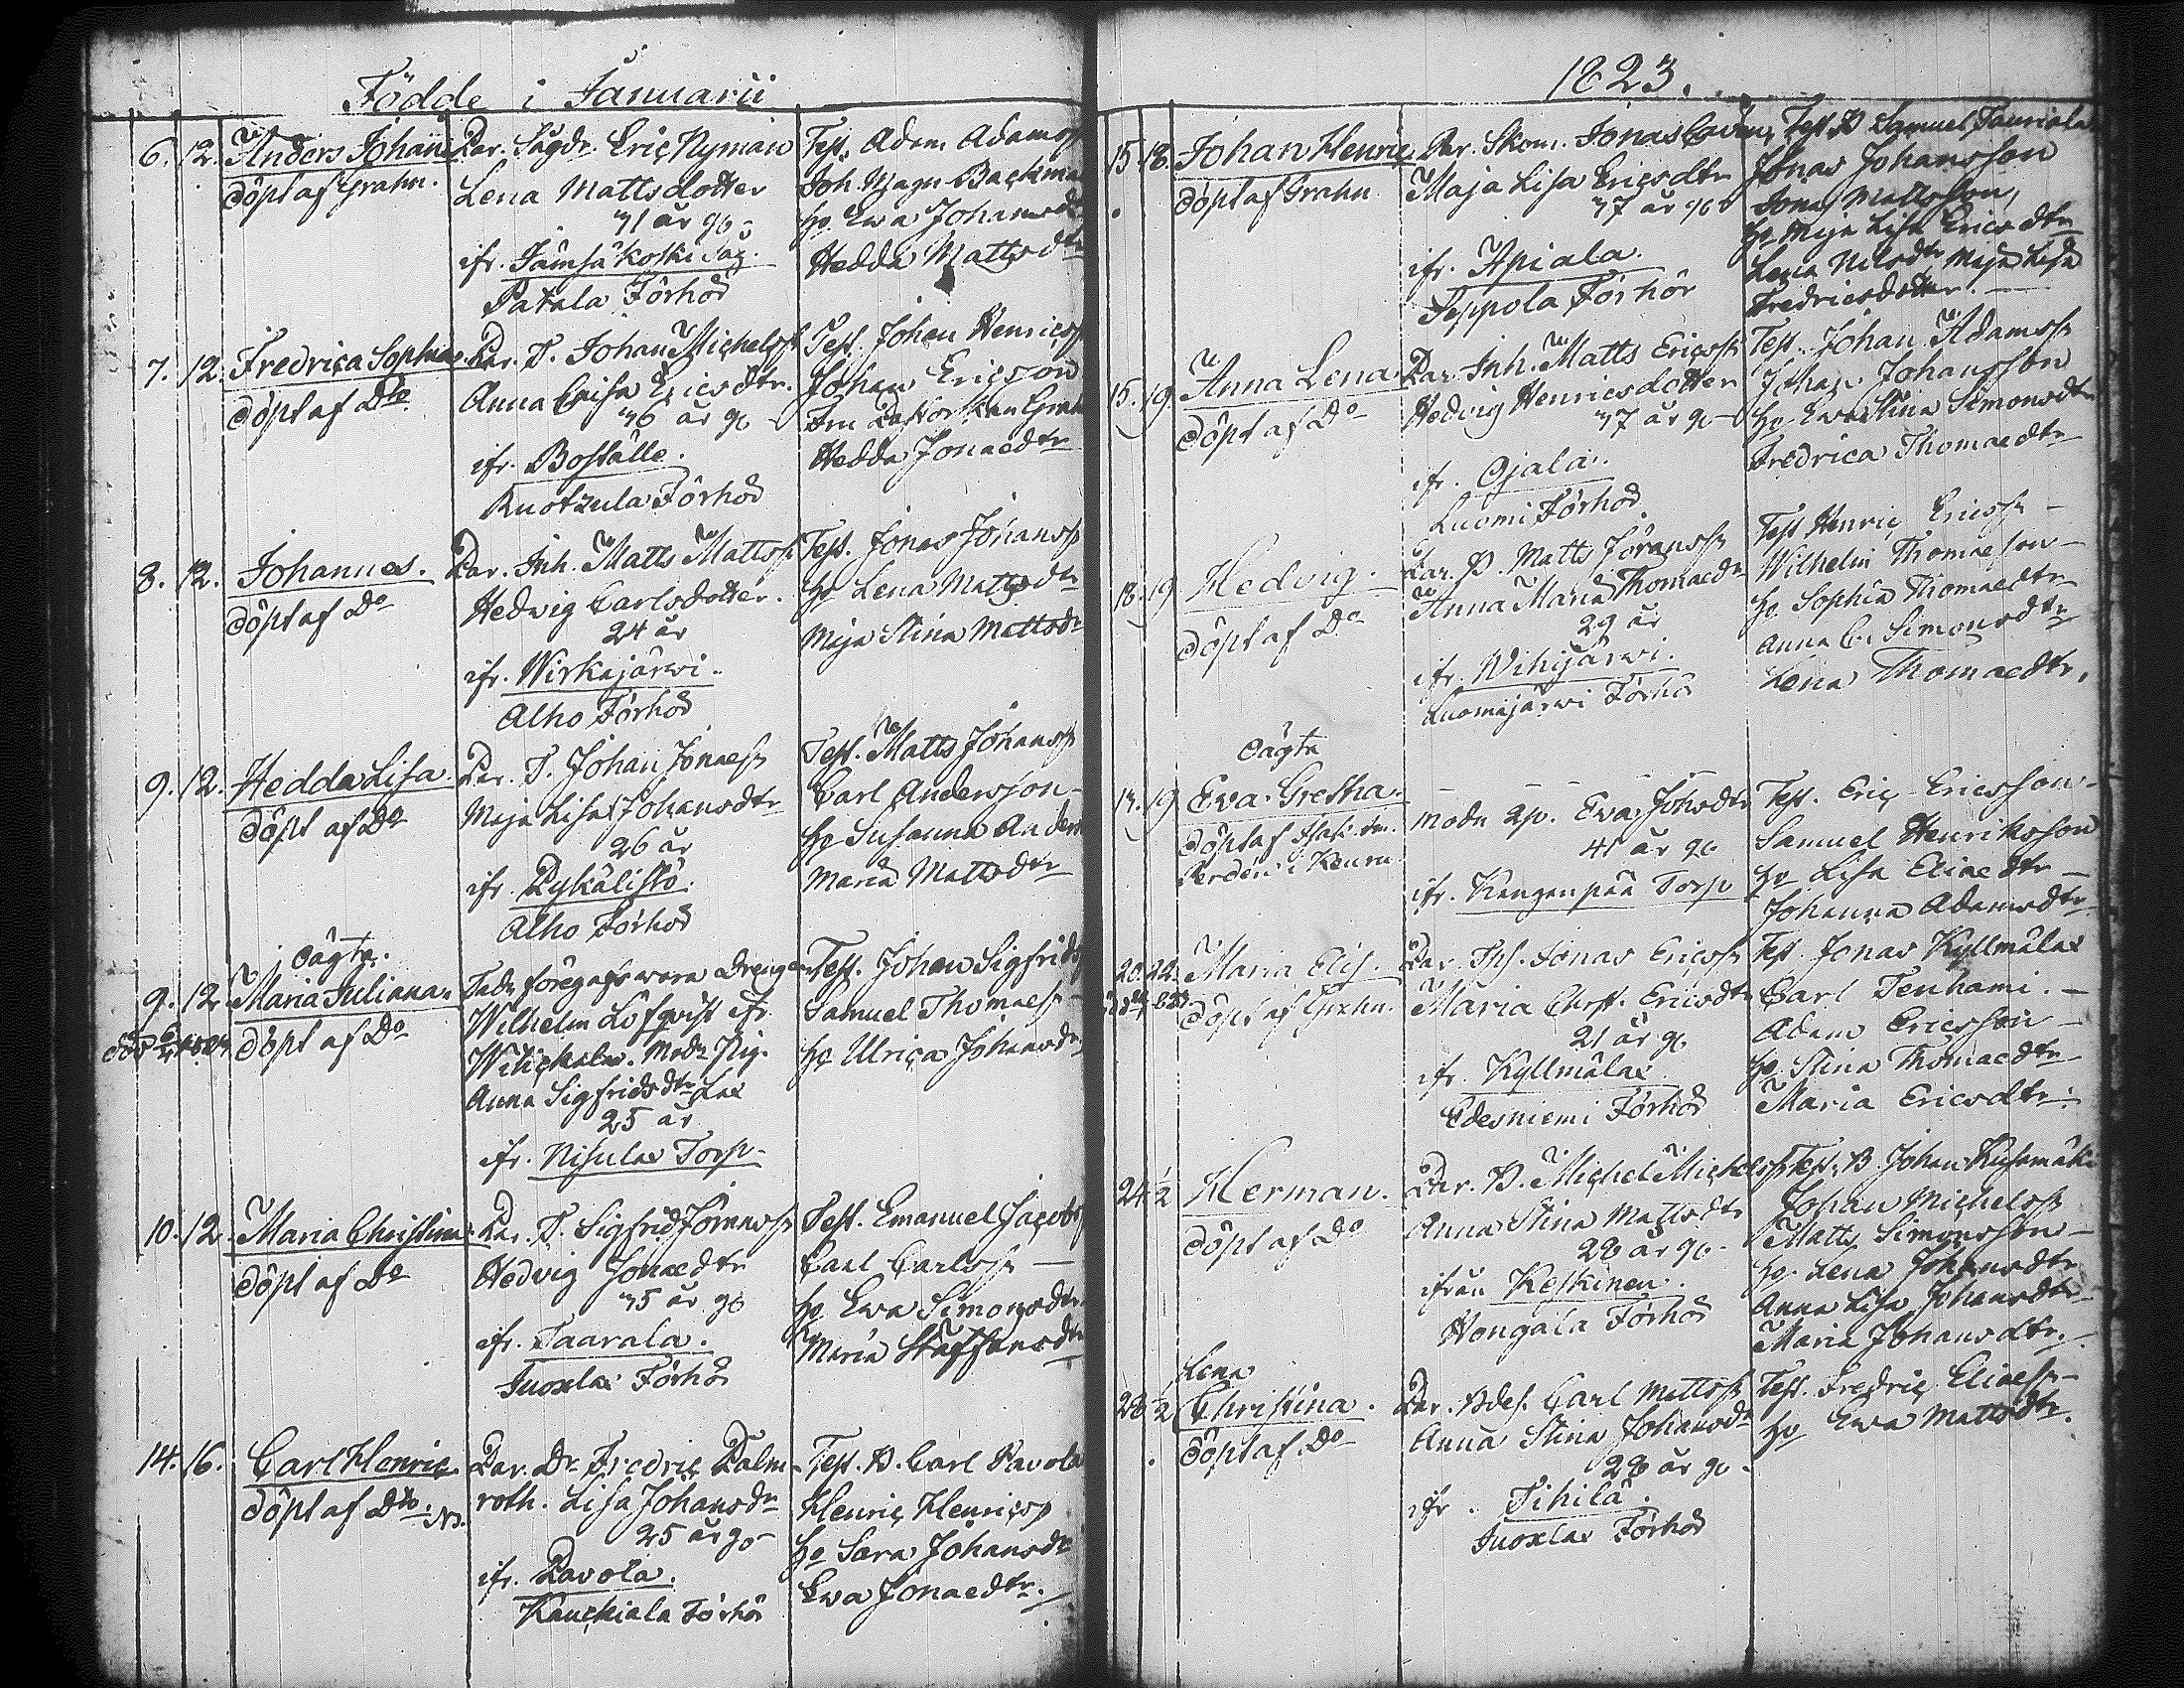 Födde i Januarii
6. 12. Anders Johan
döpt af Grahn.
Par. Sågdr. Eric Nyman
Lena Mattsdotter
31 år gl.
ifr. Jämsäkoski Såg.
Patala Förhör
Test. Adam Adamss
Joh. Magn. Backman
Ho Ewa Johansdr
Hedda Mattsdr
7. 12. Fredrica Sophia
döpt af Dto
Par. T. Johan Michelss
Anna Caisa Ericsdtr.
36 år gl
ifr. Boställe.
Ruotzula Förhör
Test. Johan Henricss
Johan Ericsson
Fru Pastorskan Grahn
Hedda Jonaedtr
8. 12. Johannes.
döpt af Do
Par. Inh. Matts Mattss
Hedvig Carlsdotter.
24 år
ifr. Wirkajärwi.
Alho Förhör
Test. Jonas Johanss
Ho Lena Mattsdr
Maja Stina Mattsdr
9. 12. Hedda Lisa.
döpt af Do
Par. T. Johan Jonaess
Maja Lisa Johansdtr
26 år
ifr. Pykälistö.
Alho Förhör
Test. Matts Johanss
Carl Andersson
Ho Susanna Anders
Maria Mattsdtr
oägta.
9. 12. Maria Juliana
döpt af Do
Fadr föregafs wara Drengen
Wilhelm Löfqvist ifr
Modr Pig.
Anna Sigfridsdtr
25 år
ifr. Nisula Torp
Test. Johan Sigfrids
Samuel Thomaess
Ho Ulrica Johansdr
10. 12. Maria Christina
döpt af Do
Par. T. Sigfrid Jöranss
Hedvig Jonaedtr
35 år gl
ifr. Taarala.
Juoxlax Förhör
Test. Emanuel Jacobs
Carl Carlss
Ho Ewa Simonsdtr
Maria Staffansdtr
14. 16. Carl Henric
döpt af Dto.
Par. Dr. Fredric Palm-
roth. Lisa Johansdr
25 år gl
ifr. Pavola.
Test. B. Carl Pavola
Henric Henricss
Ho Sara Johansdr
Ewa Jonaedtr.
1823.
15. 18. Johan Henric
döpt af Grahn
Par. Skom. Jonas
Maja Lisa Ericsdtr
37 år gl
ifr. Apiala.
Seppola Förhör
Test. B Samuel Tauriala
Jonas Johansson
Jonas Mattsson,
Ho Maja Lisa Ericsdtr
Lena Nilsdtr Maja Lisa
Fredricsdotter.
15. 19. Anna Lena
döpt af Do
Par. Inh. Matts Ericss
Hedvig Henricsdotter
37 år gl
ifr. Ojala.
Luomi Förhör
Test. Johan Adamss
Johan Johansson
Ho Ewa Stina Simonsdtr
Fredrica Thomaedtr
18. 19 Hedvig.
döpt af Do
Par. B. Matts Jöranss
Anna Maria Thomaedr
29 år
ifr. Wihijärwi.
Luomajärwi Förhör
Test Henric Ericss
Wilhelm Thomaeson
Ho Sophia Thomaedtr
Anna C. Simonsdtr
Lena Thomaedtr.
oägta
17. 19 Eva Gretha.
Modr Ewa Johsdtr
41 år gl
ifr. Kangenpää Torp
Test. Eric Ericsson
Samuel Henriksson
Ho Lisa Eliaedtr
Johanna Adamsdtr
20. 22. Maria Elis.
döpt af Grahn.
Par. Jonas Ericss
Maria Christ. Ericsdtr
21 år gl
ifr. Kyllmälax
Edesniemi Förhör
Test. Jonas Kyllmälax
Carl Tenhami.
Adam Ericsson
Ho Stina Thomaedtr
Maria Ericsdtr
24. 1/2 Herman.
döpt af Do
Par. B. Michel Michelss
Anna Stina Mattsdtr
28 år gl
ifrån Keskinen.
Hongala Förhör
Test. B. Johan
Johan Michelss
Matts Simonsson
Ho Lena Johansdtr
Anna Lisa Johansdtr
Maria Johansdtr.
Lena
28 2 Christina.
döpt af Do
Par. Carl Mattss
Anna Stina Johansdr
28 år gl
ifr. Tihilä.
Juoxlax Förhör
Test. Fredric Eliaess
Ho Ewa Mattsdtr.